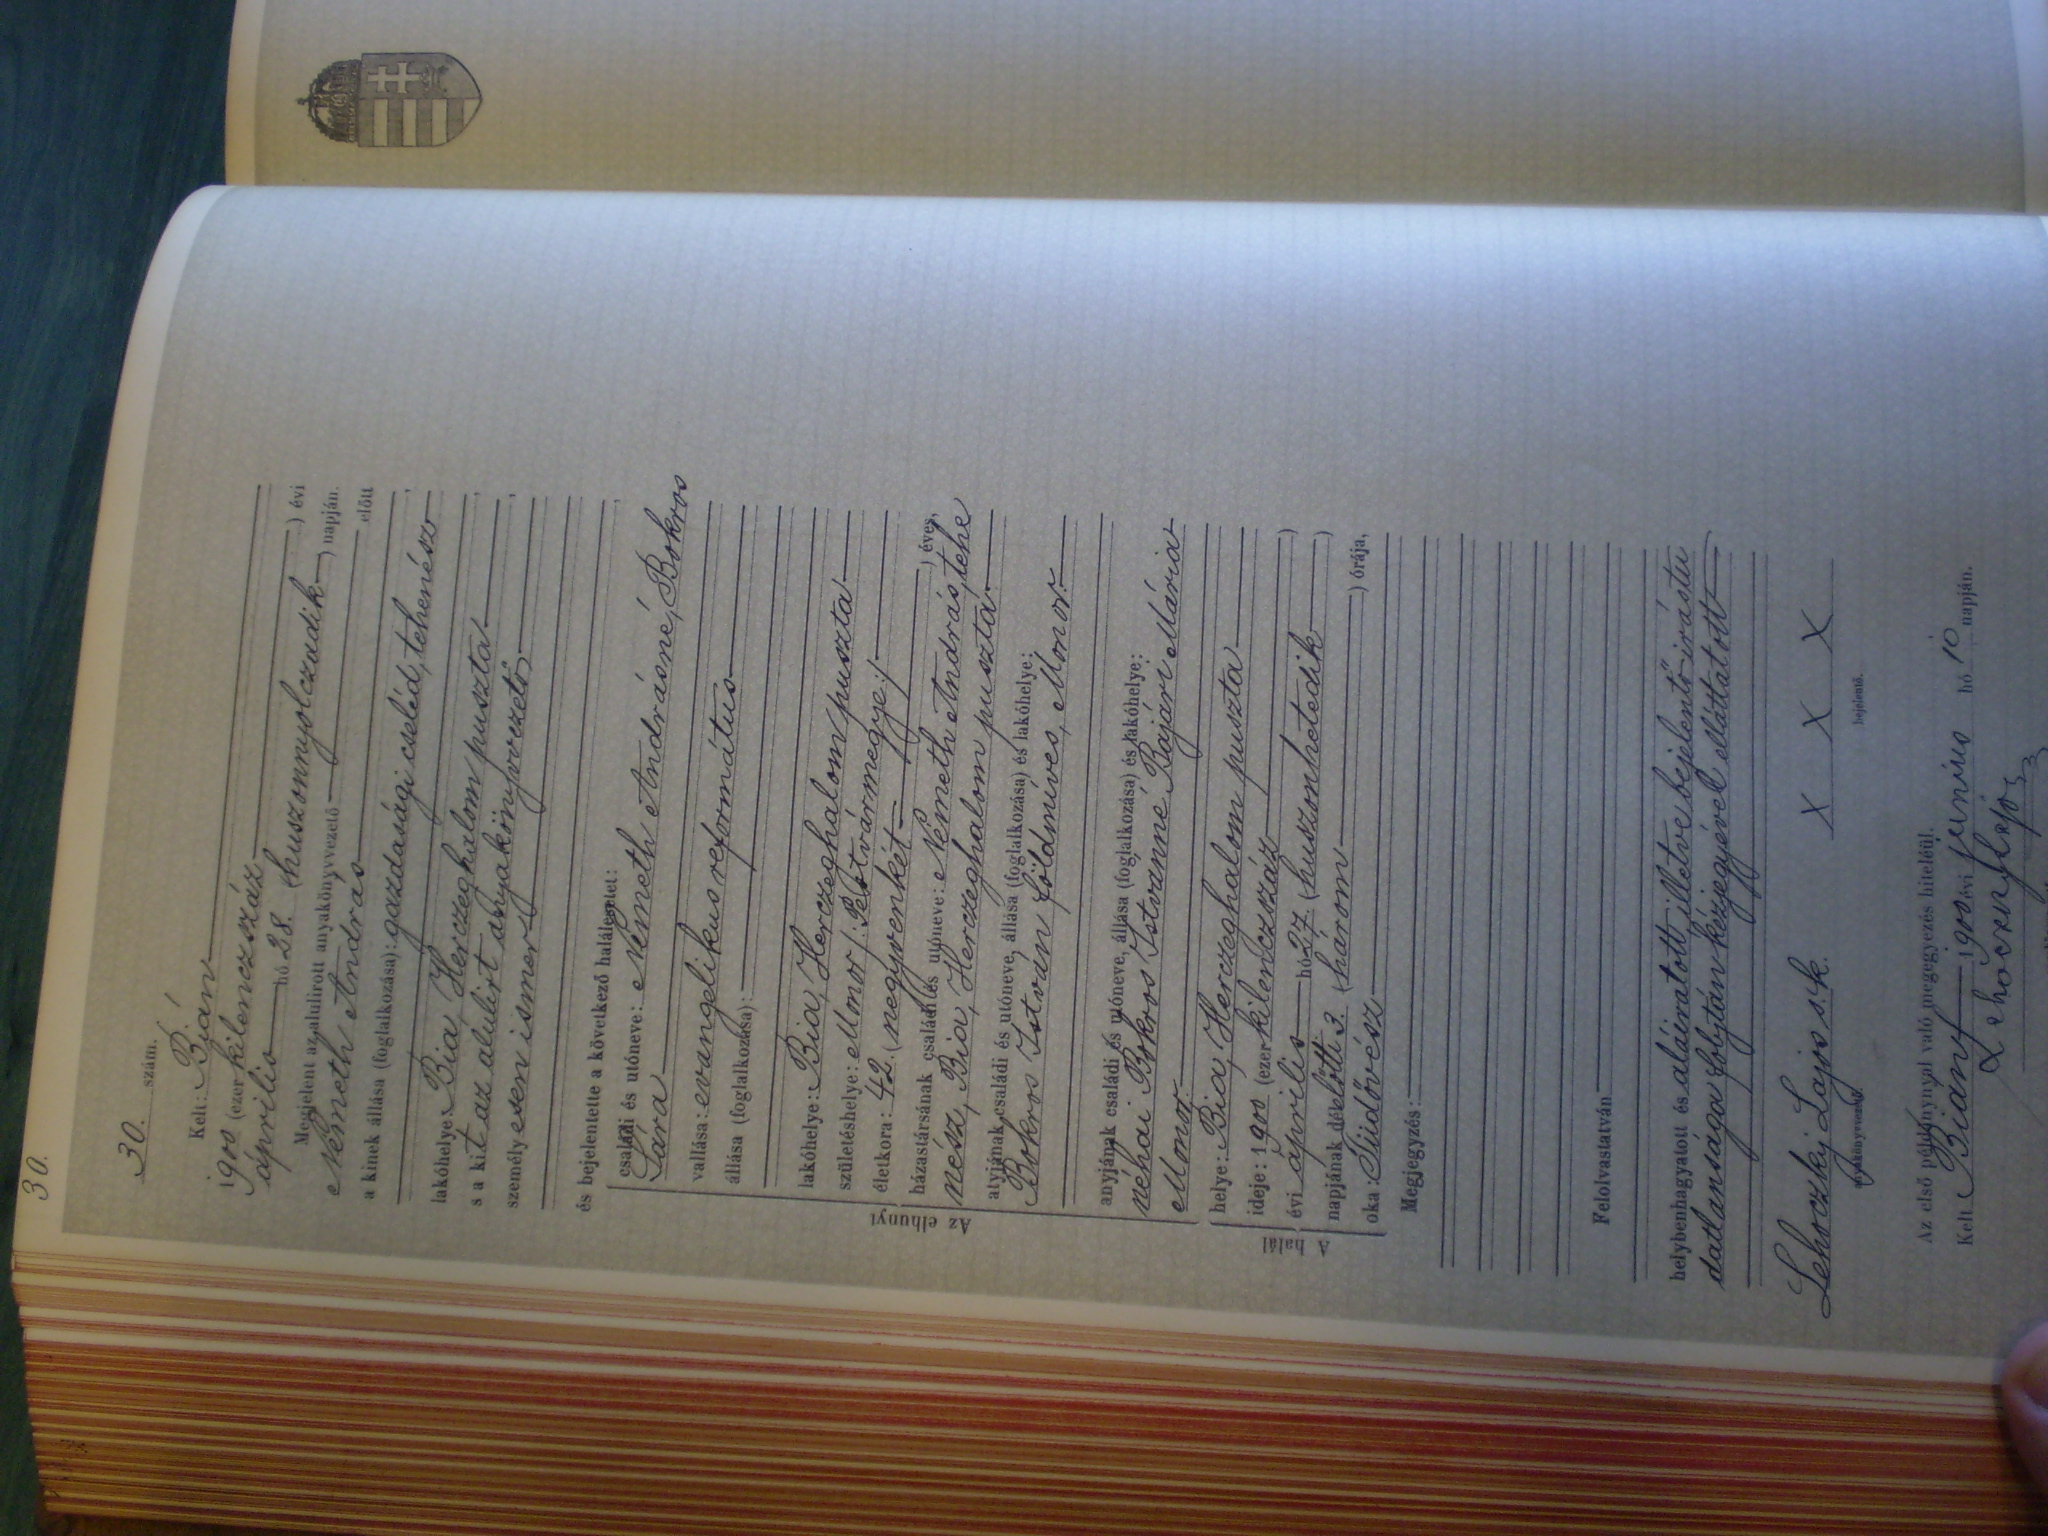 30.
30. szám.
Kelt: Bián
1900 (ezer kilenczszáz) évi
április hó 28. (huszonnyolczadik) napján.
Megjelent az alulirott anyakönyvvezető előtt
Németh András
a kinek állása (foglalkozása): gazdasági cseléd, tehenész
lakóhelye: Bia, Herczeghalom puszta
s a kit az alulirt anyakönyvvezető,
személyesen ismer
és bejelentette a következő halálesetet:
Az elhunyt
családi és utóneve: Németh Andrásné, Bokros
Sára
vallása: evangelikus református
állása (foglalkozása):
lakóhelye: Bia, Herczeghalom puszta
születéshelye: Monor /: Pestvármegye :/
életkora: 42. (negyvenkét) éves,
házastársának családi és utóneve: Németh András, tehe
nész, Bia, Herczeghalom puszta.
atyjának családi és utóneve, állása (foglalkozása) és lakóhelye:
Bokros István földmíves, Monor.
anyjának családi és utóneve, állása (foglalkozása) és lakóhelye:
néhai Bokros Istvánné Bajári Mária
Monor.
A halál
helye: Bia, Herczeghalom puszta
ideje: 1900 (ezer kilenczszáz)
évi április hó 27. (huszonhetedik)
napjának délelőtti 3. (három) órája,
oka: Tüdővész
Megjegyzés:
Felolvastatván
helybenhagyatott és aláiratott illetve bejelentő irástu
datlansága folytán kézjegyével elláttatott
Lehoczky Lajos s.k. x x x
anyakönyvvezető. bejelentő.
Az első példánynyal való megegyezés hiteléül.
Kelt Bián, 1900. évi junius hó 10 napján.